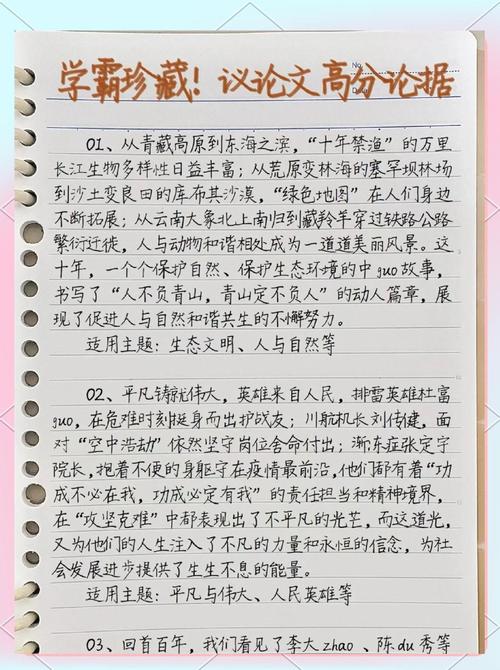 学霸珍藏！议论文高分论据
No
01、从青藏高原到东海之滨，“十年禁渔”的万里
长江生物多样性日益丰富；从荒原变林海的塞罕坝林场
到沙土变良田的库布其沙漠，“绿色地图”在人们身边
不断拓展；从云南大象北上南归到藏羚羊穿过铁路公路
繁衍迁徙，人与动物和谐相处成为一道道美丽风景。这
十年，一个个保护自然、保护生态环境的中guo故事，
书写了“人不负青山，青山定不负人”的动人篇章，展
现了促进人与自然和谐共生的不懈努力。
适用主题：生态文明、人与自然等
02、平凡铸就伟大，英雄来自人民，排雷英雄杜富
guo，在危难时刻挺身而出护战友；川航机长刘传健，面
对“空中浩劫”依然坚守岗位舍命付出；渐冻症张定宇
院长，抱着不便的身躯守在疫情最前沿，他们都有着“功
成不必在我，功成必定有我”的责任担当和精神境界，
在“攻坚克难”中都表现出了不平凡的光芒，而这道光，
又为他们的人生注入了不凡的力量和永恒的信念，为社
会发展进步提供了生生不息的能量。
适用主题：平凡与伟大、人民英雄等
03、回首百年，我们看见了李大zhao、陈du秀等